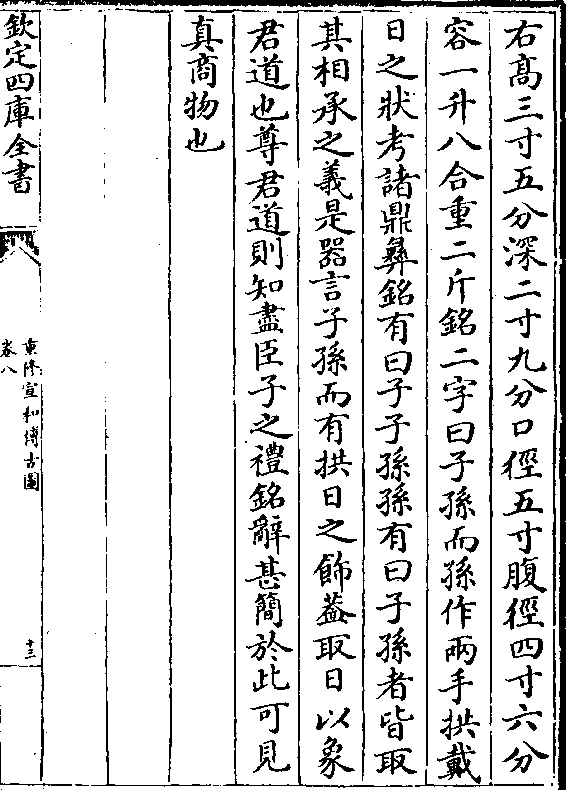 右髙三寸五分深二寸九分口徑五寸腹徑四寸六分
容一升八合重二斤銘二字曰子孫而孫作兩手拱戴
日之狀考諸鼎彞銘有曰子子孫孫有曰子孫者皆取
其相承之義是器言子孫而有拱日之飾葢取日以象
君道也尊君道則知盡臣子之禮銘辭甚簡於此可見
真商物也
欽定四庫全書
重修宣和博古圖
卷八
十三